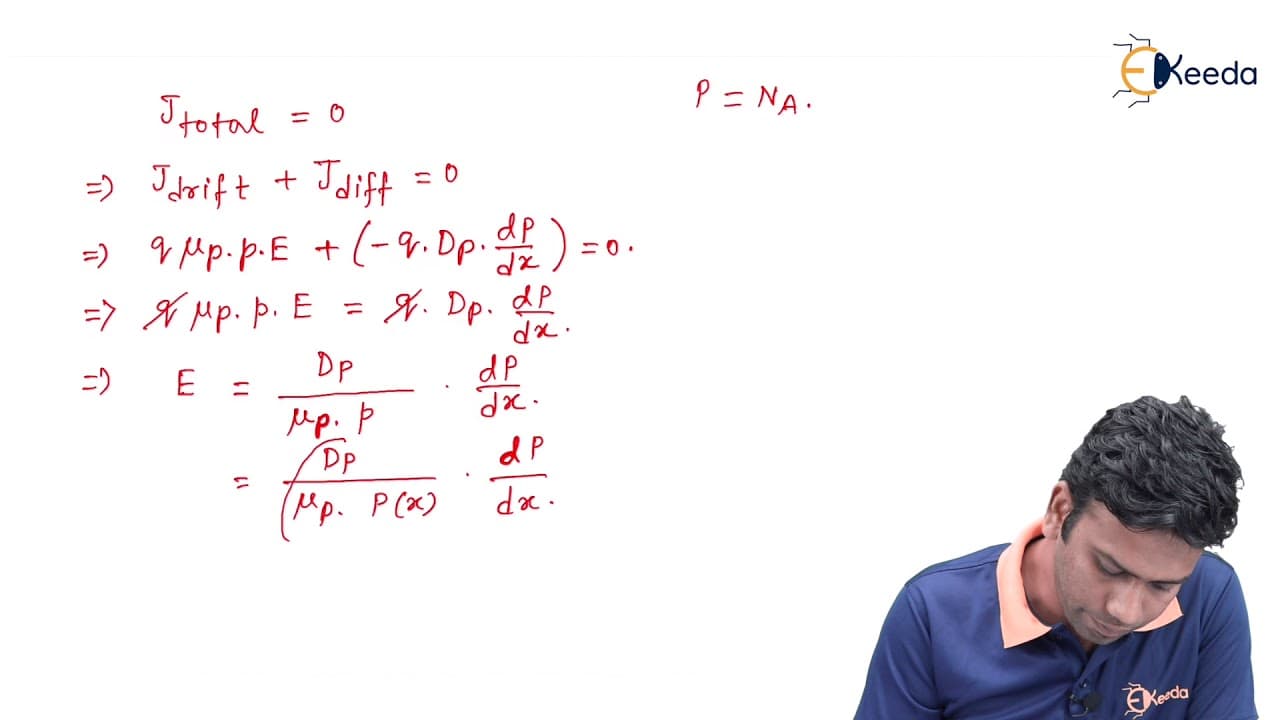 EKeeda
J_total = 0
P = N_A.
=> J_drift + J_diff = 0
=> q μp. p. E + (- q. Dp. dP/dx) = 0.
=> q μp. p. E = q. Dp. dP/dx.
=> E = Dp/μp. p . dP/dx.
= Dp/μp. P(x) . dP/dx.
EKeeda